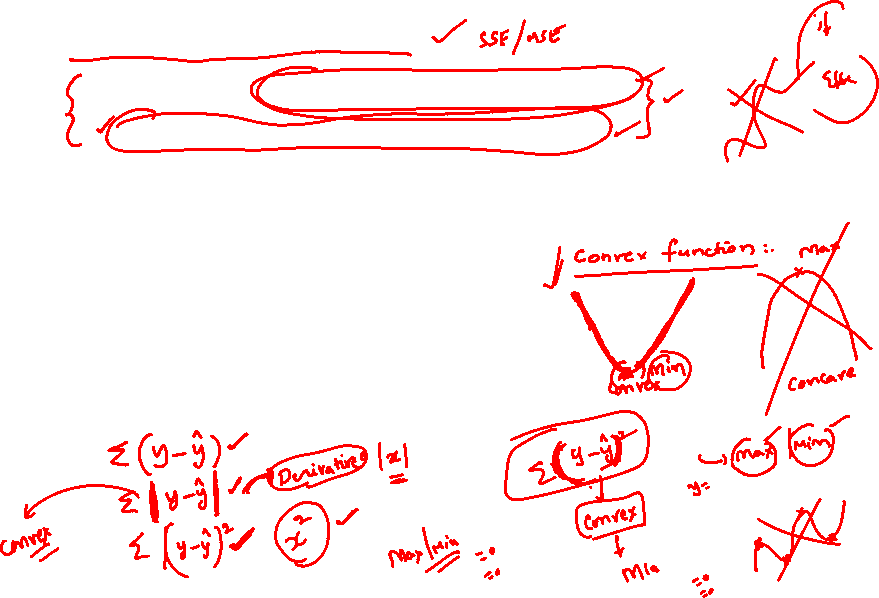 SSE/MSE
if
Convex function:.
Max
min
Convex
Concave
Σ(y-ŷ)
Σ|y-ŷ|
Derivative
|x|
Convex
Σ(y-ŷ)²
x²
Max/Min
=0
=0
Σ(y-ŷ)²
Convex
Min
y=
Max
Min
=0
=0